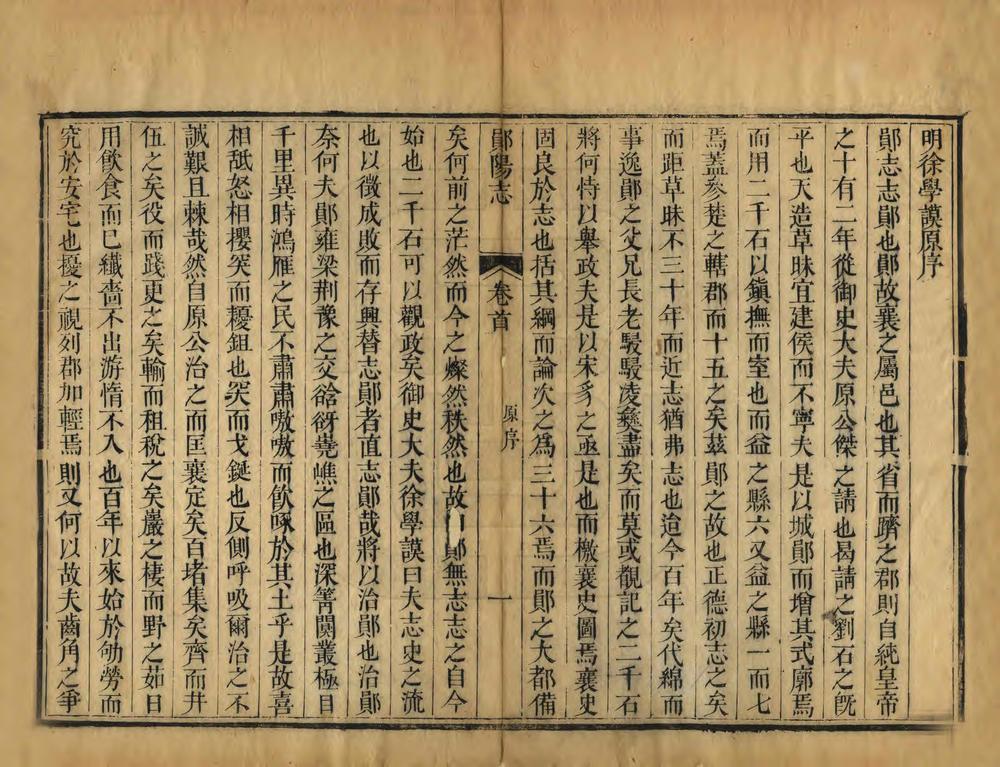 明徐學謨原序
鄖志志鄖也鄖故襄之屬邑也其省而躋之郡則自純皇帝
之十有二年從御史大夫原公傑之請也曷請之劉石之旣
平也天造草昧宜建侯而不寧夫是以城鄖而增其式廓焉
而用二千石以鎮撫而室也而益之縣六又益之縣一而七
焉蓋參楚之轄郡而十五之矣茲鄖之故也正德初志之矣
而距草昧不三十年而近志猶弗志也迨今百年矣代綿而
事逸鄖之父兄長老駸駸凌彝盡矣而莫或覩記之二千石
將何恃以舉政夫是以宋豸之亟是也而檄襄史圖焉襄史
固良於志也括其綱而論次之爲三十六焉而鄖之大都備
鄖陽志
卷首
原序
一
矣何前之茫然而今之燦然秩然也故曰鄖無志志之自今
始也二千石可以觀政矣御史大夫徐學謨曰夫志史之流
也以徵成敗而存興替志鄖者直志鄖哉將以治鄖也治鄖
奈何夫鄖雍梁荆豫之交谽谺嶢嶕之區也深箐闃叢極目
千里異時鴻雁之民不肅肅嗷嗷而飲啄於其土乎是故喜
相舐怒相攖突而耰鉏也突而戈鋋也反側呼吸爾治之不
誠艱且棘哉然自原公治之而匡襄定矣百堵集矣齊而井
伍之矣役而踐更之矣輸而租稅之矣巖之棲而野之茹日
用飲食而已纖嗇不出游惰不入也百年以來始於劬勞而
究於安宅也擾之視列郡加輕焉則又何以故夫齒角之爭